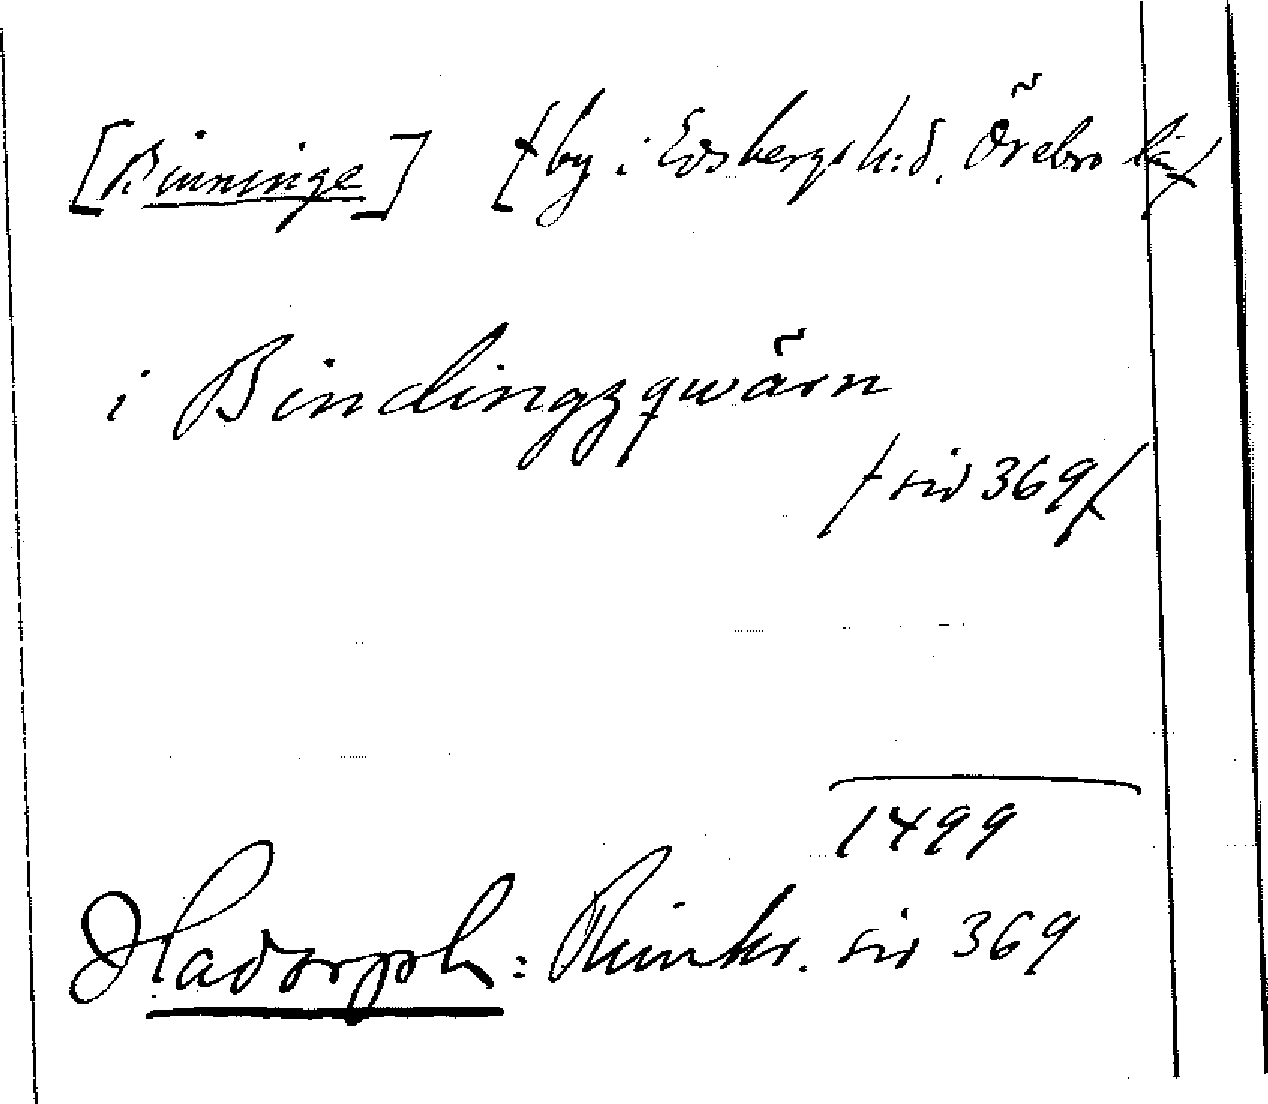 [Binninge] [by i Edsbergs h:d. Örebro län]
i Bindingzqwärn
/ sid 369 /
1499
Hadorph: Rimkr. sid 369